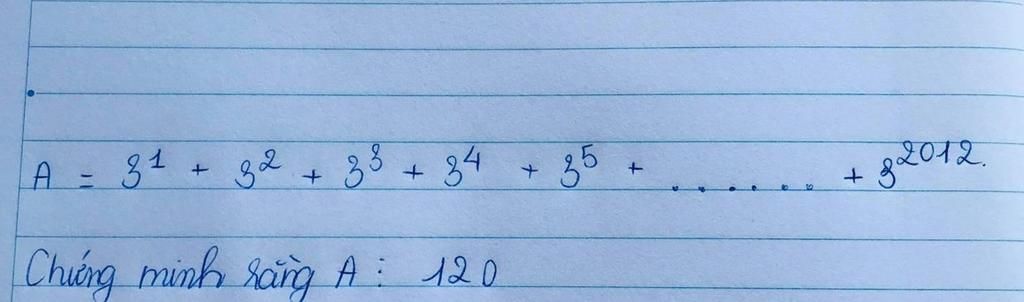 A = 3¹ + 3² + 3³ + 3⁴ + 3⁵ + ...... + 3²⁰¹².
Chứng minh rằng A ⋮ 120